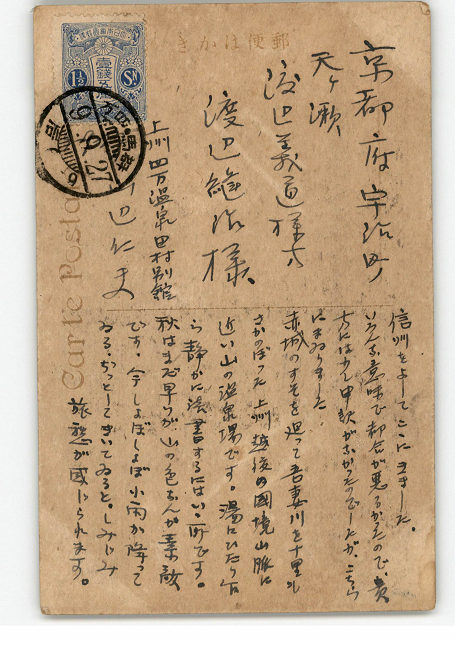 郵便はかき
1½ Sn
9. 9. 27
Carte Postal
京都府宇治町
天ヶ瀬
渡辺義道様方
渡辺継治様
上州四万温泉田村別館
辺仁夫
信州をよしてここにきました。
いろんな意味で都合が悪るかつたので貴
方には少し申訳がなかつたのでしたが、こちら
にまゐりました
赤城のすそを廻つて吾妻川を十里も
さかのぼつた上州越後の国境山脈に
近い山の温泉場です。湯にひたりなが
ら静かに読書するにはいゝ所です。
秋はまだ早いが山の色なんか素敵
です。今しよぼしよぼ小雨が降つて
ゐる。ぢつとしてきいてゐると。しみじみ
旅愁が感じられます。